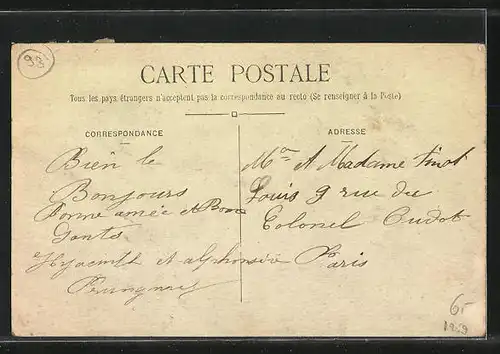 93
CARTE POSTALE
Tous les pays étrangers n'acceptent pas la correspondance au recto (Se renseigner à la Poste)
CORRESPONDANCE
Bien le
Bonjours
Bonne amée et Bonne
Santé
Hyacinth et alphonsine
ADRESSE
Mr et Madame Finot
Louis 9 rue du
Colonel Oudot
Paris